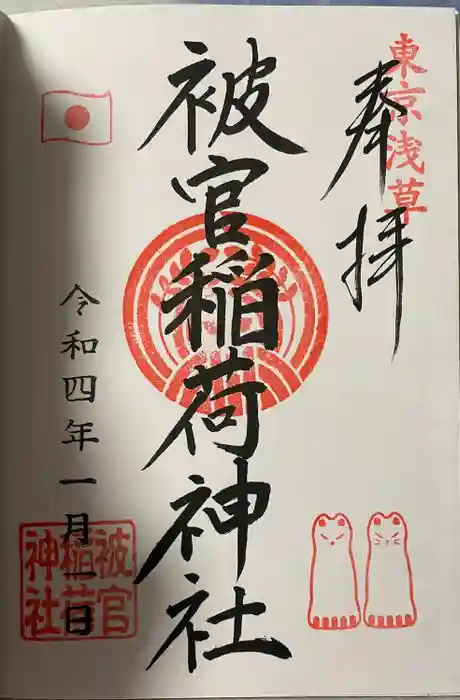 東京浅草
奉拝
被官稲荷神社
令和四年一月二日
被官
稲荷
神社